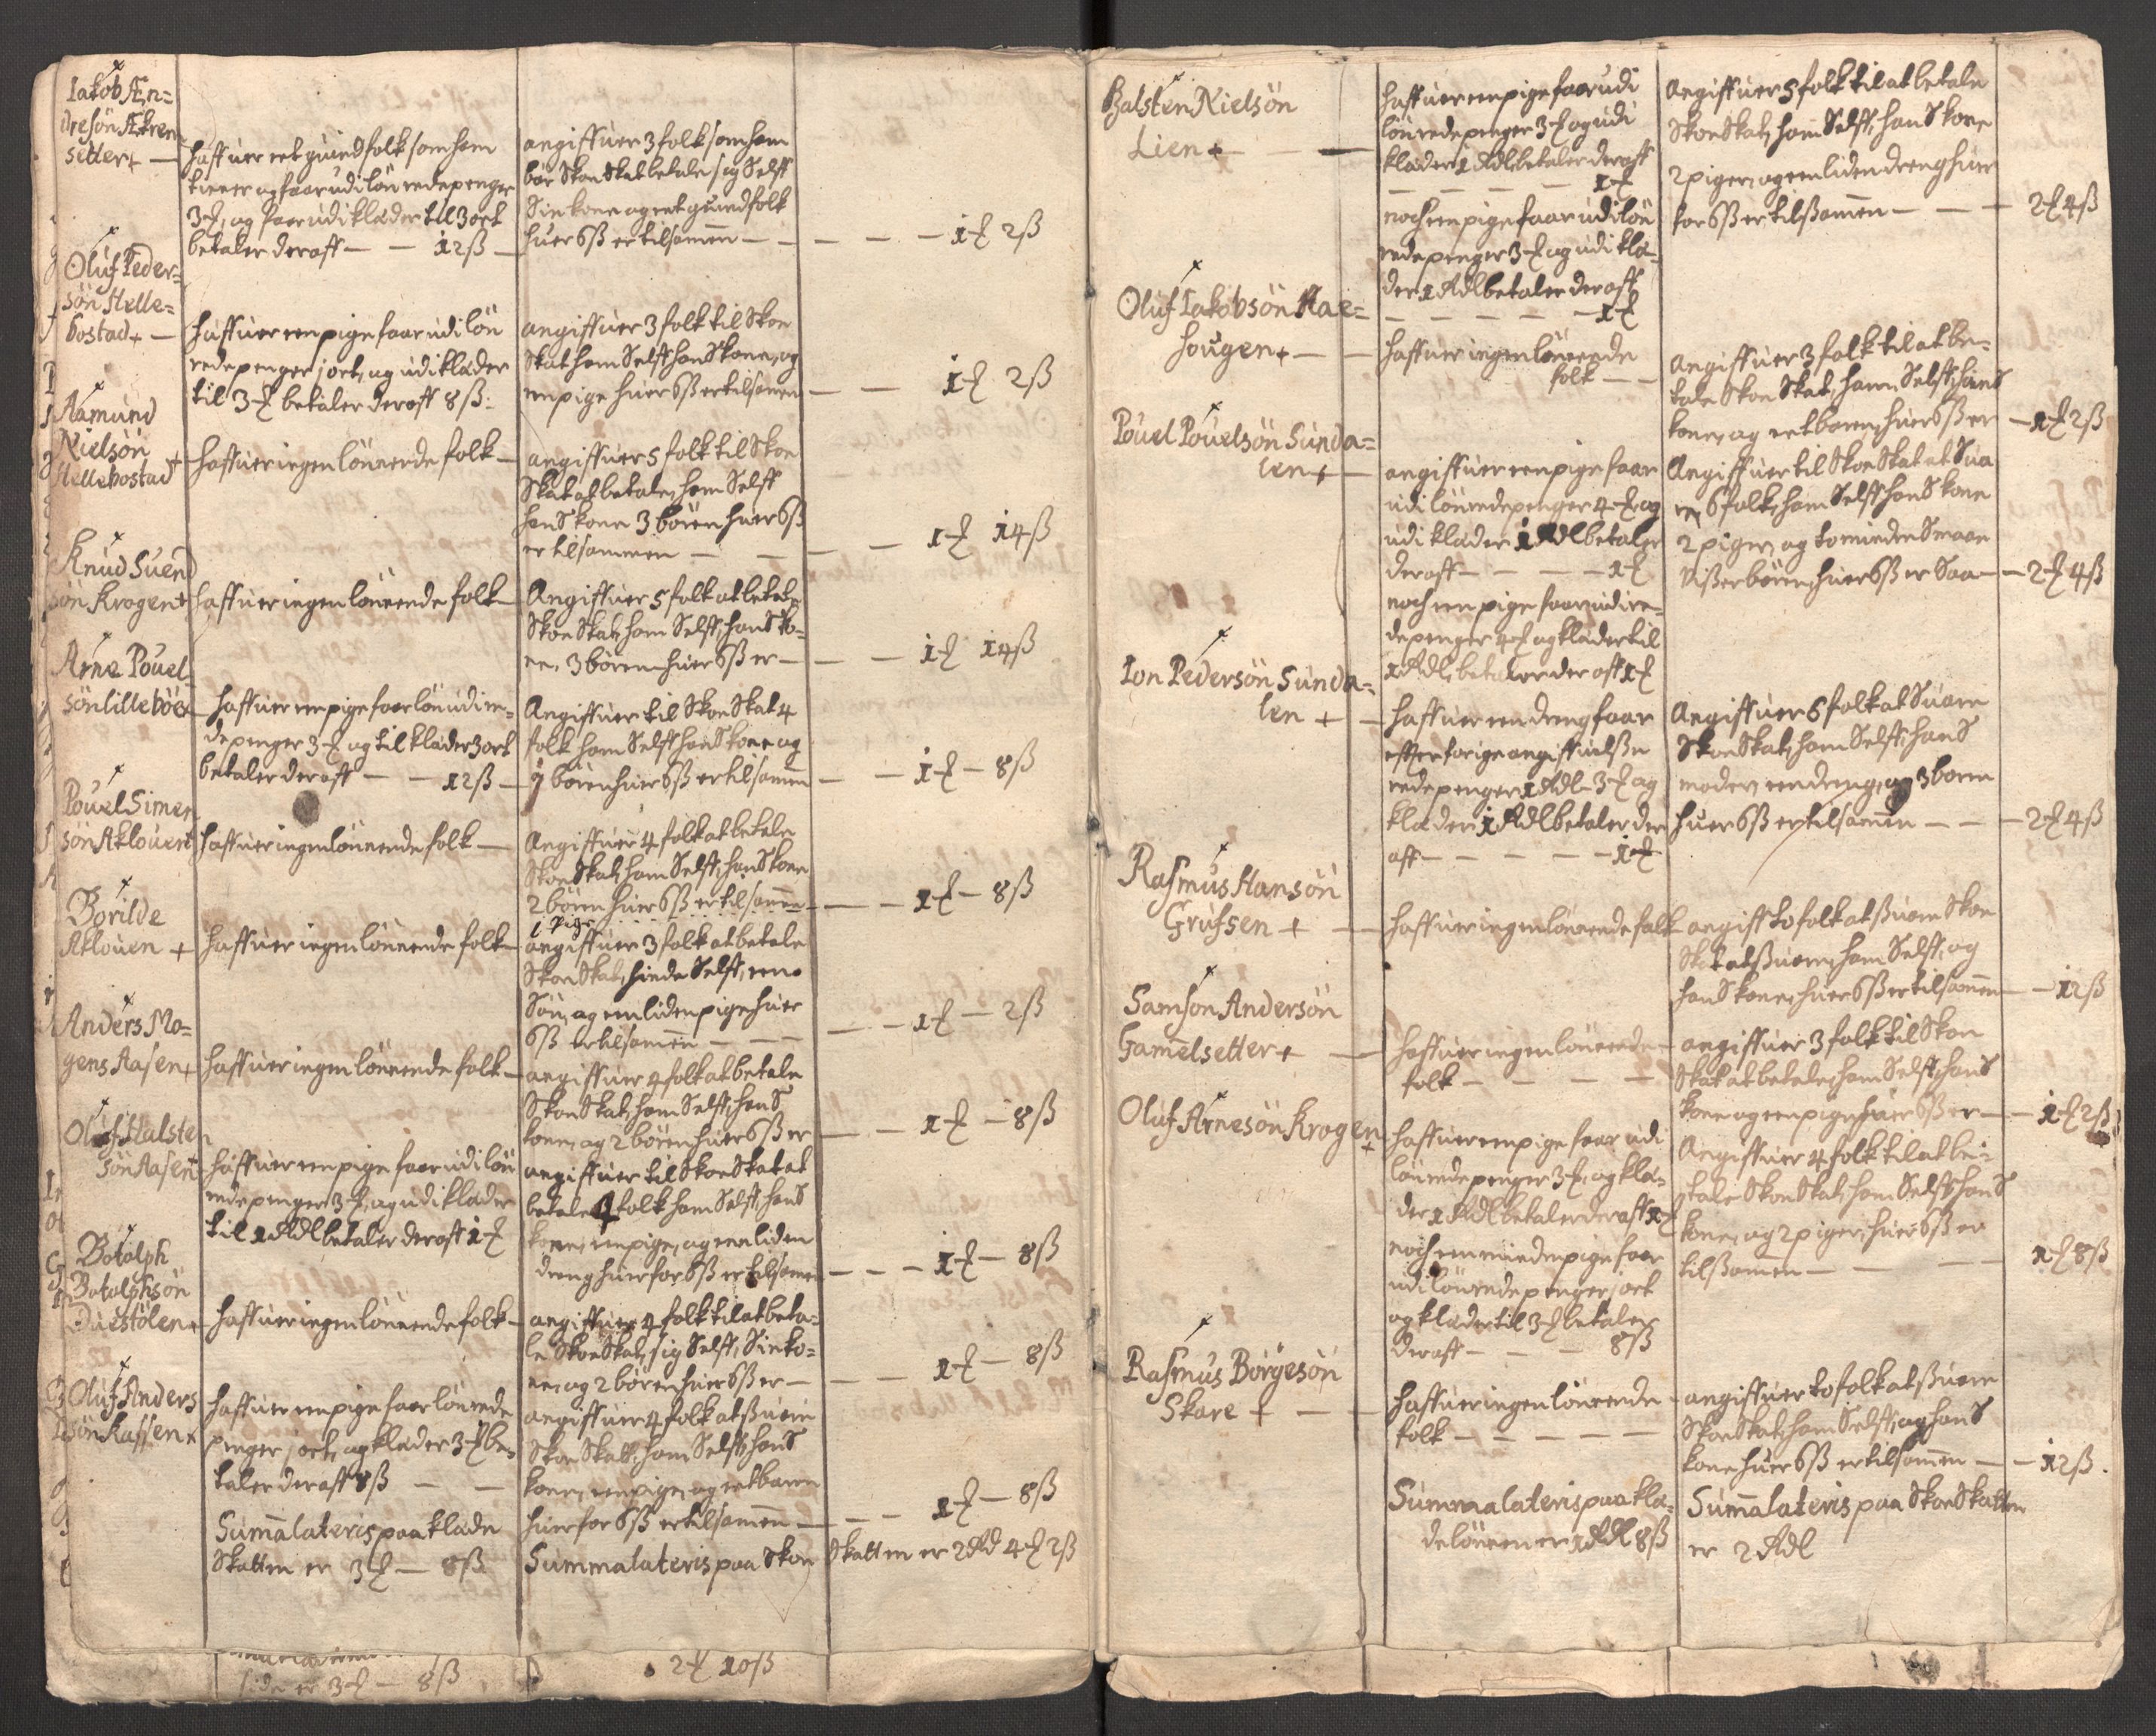 Iakob Æn=
dresön Ækren
setter+ —
haffuer et quindfolk som ham
tiener og faar udi lön rede penger
3 ₰, og faar udi klæder til 3 ort
betaler deraff — — 12 ß —
angiffuer 3 folk som ham
bör Skoe Skat betale sig Selff
Sin kone og et quindfolk
huer 6 ß er tilsamen — — — — — 1 ₰ 2 ß
Oluf Peder=
sön Helle=
bostad+ —
haffuer en pige faar udi lön
rede penger j ort, og udi klæder
til 3 ₰ betaler deraff 8 ß.
angiffuer 3 folk til Skoe
Skat ham Selff hans kone, og
en pige huer 6 ß er tilsamen — — 1 ₰ 2 ß
Aamund
Nielsön +
Hellebostad
haffuer ingen lönnende folk —
angiffuer 5 folk til Skoe
Skat at betale, ham Selff
hans kone 3 börn huer 6 ß
er tilsammen — — — — 1 ₰ 14 ß
Knud Suend
sön Krogen+
haffuer ingen lönnende folk —
Angiffuer 5 folk at betale
Skoe Skat, ham Selff, hans ko=
ne, 3 börn huer 6 ß er — — — 1 ₰ 14 ß
Arne Pouel
sön lilleböe+
haffuer en pige faar lön udi re=
de penger 3 ₰ og til klæder 3 ort
betaler deraff — — 12 ß —
Angiffuer til Skoe Skat 4
folk ham Selff hans kone og
2 börn huer 6 ß er tilsamen — — 1 ₰ — 8 ß
Pouel Simen
sön Aklouen+
haffuer ingen lönnende folk —
Angiffuer 4 folk at betale
Skoe Skat, ham Selff, hans kone
2 börn huer 6 ß er tilsamen — — — 1 ₰ — 8 ß
Borilde
Aklouen +
haffuer ingen lönnende folk —
1 pige
angiffuer 3 folk at betale
Skoe Skat, hinde Selff, en
Sön, og en liden pige huer
6 ß er tilsamen — — — — — 1 ₰ — 2 ß
Anders Mo=
gens Aasen+
haffuer ingen lönnende folk —
angiffuer 4 folk at betale
Skoe Skat, ham Selff, hans
kone, og 2 börn huer 6 ß er — — 1 ₰ — 8 ß
Oluf Halsten
sön Aasen+
haffuer en pige faar udi lön
rede penger 3 ₰, og udi klæder
til 1 Rdl betaler deraff 1 ₰
angiffuer til Skoe Skat at
betale 4 folk ham Selff, hans
kone, en pige, og en liden
dreng huer for 6 ß er tilsamen — — — 1 ₰ — 8 ß
Botolph
Botolphsön
Duestölen+
haffuer ingen lönnende folk —
angiffuer 4 folk til at beta=
le Skoe Skat, sig Selff, Sin ko=
ne, og 2 börn huer 6 ß er — — — 1 ₰ — 8 ß
Oluf Anders
sön Raffen+
haffuer en pige faar lön rede
penger j ort, og klæder 3 ₰ be=
taler deraff 8 ß — —
angiffuer 4 folk at ßuare
Skoe Skatt, ham Selff, hans
kone, en pige, og et barn
huer for 6 ß er tilsamen — — — 1 ₰ — 8 ß
Summa lateris paa klæde
Skatten er 3 ₰ — 8 ß
Summa lateris paa Skoe Skatten er 2 Rd 4 ₰ 2 ß
side er 3 ₰ — 8 ß
2 ₰ 10 ß
Balsten Nielsön
Lien+ — —
haffuer en pige faar udi
lön rede penger 3 ₰ og udi
klæder 1 Rdl betaler deraff
— — — — — 1 ₰
noch en pige faar udi lön
rede penger 3 ₰ og udi klæ=
der 1 Rdl betaler deraff
— — — — — 1 ₰
Angiffuer 5 folk til at betale
Skoe Skat, ham Selff, hans kone
2 piger, og en liden dreng huer
for 6 ß er tilßamen — — — 2 ₰ 4 ß
Oluf Iakobsön Aae=
hougen+ — —
haffuer ingen lönnende
folk — —
Angiffuer 3 folk til at be=
tale Skoe Skat, ham Selff, hans
kone, og et barn, huer 6 ß er — 1 ₰ 2 ß
Pouel Pouelsön Sunda=
len+ —
angiffuer en pige faar
udi lön rede penger 4 ₰, og
udi klæder 1 Rdl betaler
deraff — — — — 1 ₰
noch en pige faar udi re=
de penger 4 ₰ og klæder til
1 Rdl, betaler deraff 1 ₰
Angiffuer til Skoe Skat at Sua
re, 6 folk, ham Selff hans kone
2 piger, og to minder Smaae
Vißer börn, huer 6 ß er Saa — — 2 ₰ 4 ß
Ion Pedersön Sunda=
len + —
haffuer en dreng faar
effter forige angiffuelße
rede penger 1 Rdl 3 ₰ og
klæder 1 Rdl betaler der
aff — — — — — 1 ₰
Angiffuer 6 folk at Suare
Skoe Skat, ham Selff, hans
moder, en dreng, og 3 börn
huer 6 ß er tilsamen — — — 2 ₰ 4 ß
Rasmus Hansön
Gruhsen + —
haffuer ingen lönnende folk
angiff to folk at ßuare Skoe
Skat at ßuare, ham Selff, og
hans kone, huer 6 ß er tilsamen — — 12 ß
Samson Andersön
Gamelsetter+ —
haffuer ingen lönnende —
folk — — — —
angiffuer 3 folk til Skoe
Skat at betale, ham Selff, hans
kone og en pige huer 6 ß er — — 1 ₰ 2 ß
Oluf Arnesön Krogen
+
haffuer en pige faar udi
lön rede penger 3 ₰, og klæ=
der 1 Rdl betaler deraff 1 ₰
noch en minde pige faar
udi lön rede penger j ort
og klæder til 3 ₰ betaler
deraff — — — 8 ß
Angiffuer 4 folk til at be=
tale Skoe Skat, ham Selff, hans
kone, og 2 piger, huer 6 ß er
tilßamen — — — — 1 ₰ 8 ß
Rasmus Börgesön
Skare + — —
haffuer ingen lönnende —
folk — — — — —
angiffuer to folk at ßuare
Skoe Skat, ham Selff, og hans
kone huer 6 ß er tilsamen — — 12 ß.
Summa lateris paa klæ=
de lönnen er 1 Rdl 8 ß
Summa lateris paa Skoe Skatten
er 2 Rdl